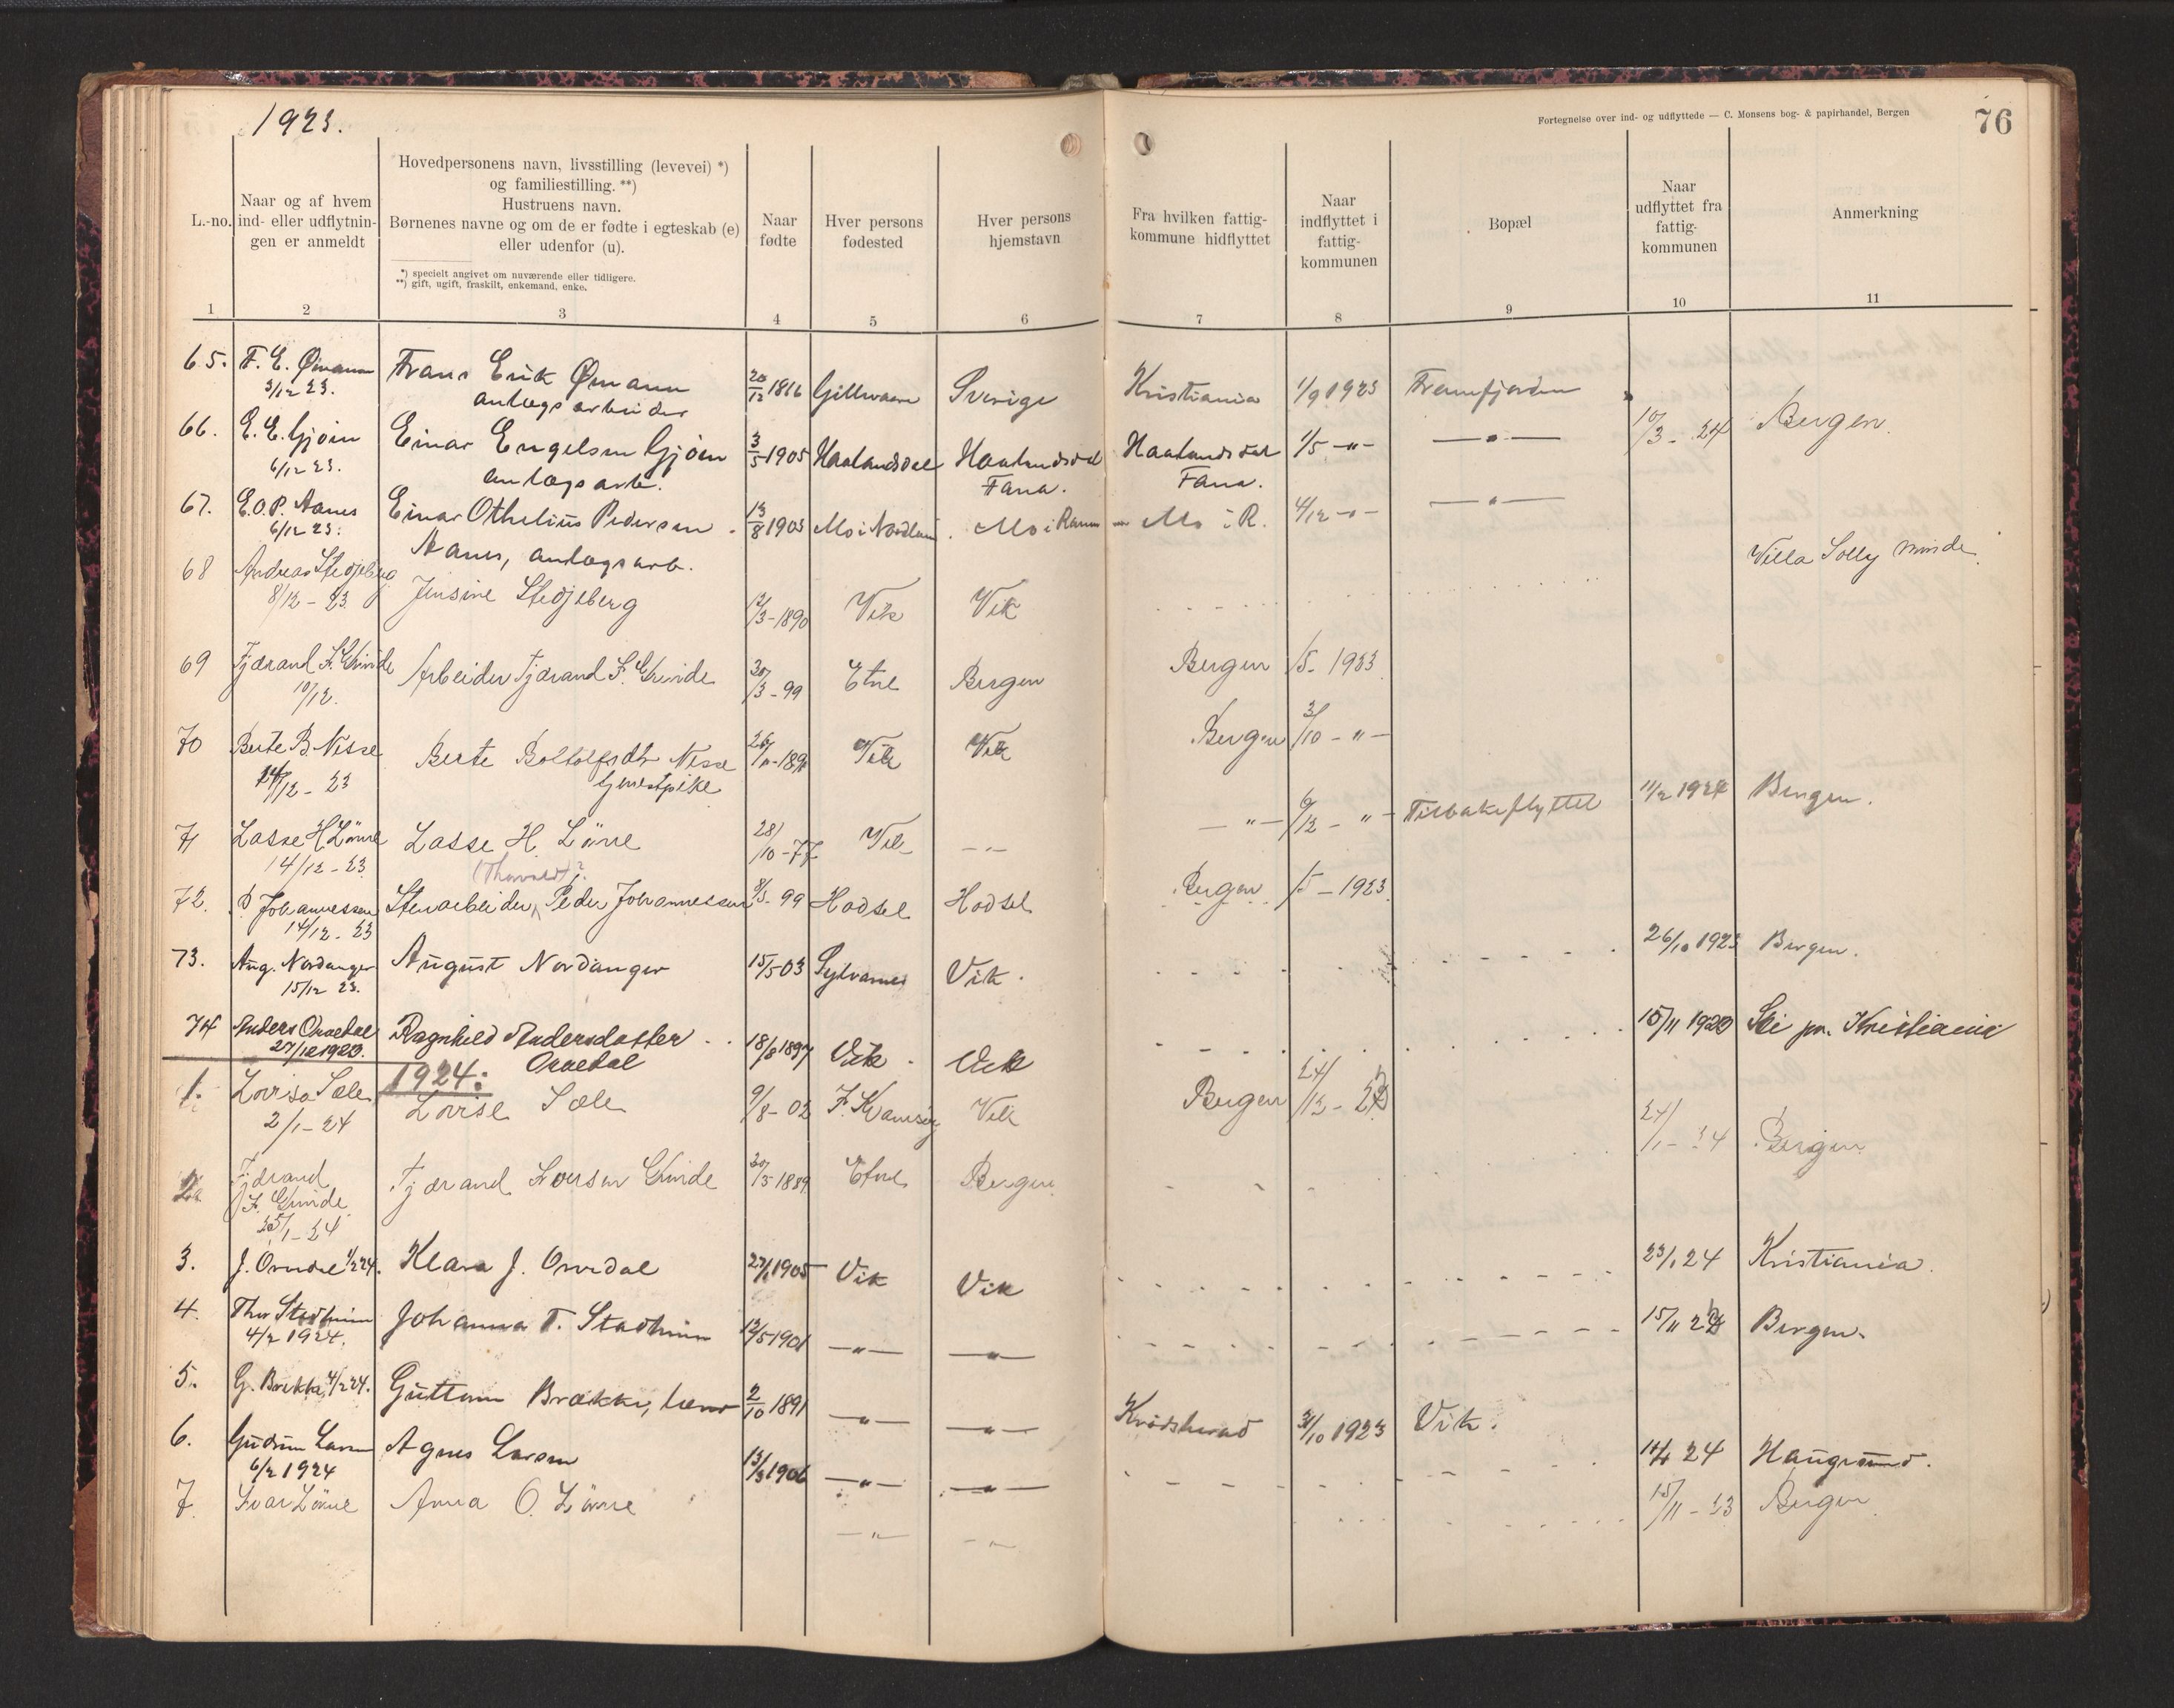 1923.
Fortegnelse over ind- og udflyttede — C. Monsens bog- & papirhandel, Bergen
76
L.-no.
Naar og af hvem
ind- eller udflytnin-
gen er anmeldt
Hovedpersonens navn, livsstilling (levevei) *)
og familiestilling. **)
Hustruens navn.
Børnenes navne og om de er fødte i egteskab (e)
eller udenfor (u).
*) specielt angivet om nuværende eller tidligere.
**) gift, ugift, fraskilt, enkemand, enke.
Naar
fødte
Hver persons
fødested
Hver persons
hjemstavn
Fra hvilken fattig-
kommune hidflyttet
Naar
indflyttet i
fattig-
kommunen
Bopæl
Naar
udflyttet fra
fattig-
kommunen
Anmerkning
1 2 3 4 5 6 7 8 9 10 11
65. F. E. Ømann Frans Erik Ømann 20/12 Sverige Kristiania 1/9 1923
3/12 23. anlægsarbeider
66. E. E. Gjøen Einar Engelsen Gjøen 3/5 1905 Haalandsdal Haalandsdal Haalandsdal 1/5 -"- -"- 10/3 - 24 Bergen.
6/12 23. anlægsarb. Fana. Fana.
67. E.O.P. Aanes Einar Othelius Pedersen 13/8 1903 Mo i Nordland Mo i Ranen Mo i R. 4/12 -"- -"-
6/12 23. Aanes, anlægsarb.
68 Andreas Stedjeberg Jensine Stedjeberg 12/3-1890 Vik Vik Villa Solly minde
8/12 - 23.
69 Tjærand F. Grinde Arbeider Tjærand F. Grinde 30/3 - 99 Etne Bergen Bergen /5 - 1923
10/12.
70 Berte B. Nisse Berte Boltolfsdtr Nisse Vik Vik Bergen 3/10 - " -
14/12 - 23 tjenestpike
71 Lasse H Lönne Lasse H. Lönne 28/10 - 77 Vik - " - - " - 6/12 - " - Tilbakeflyttet 11/2 1924 Bergen.
14/12 - 23 (Thorvald)?
72. P Johannessen Stenarbeider, Peder Johannessen 8/5 - 99 Hadsel Hadsel Bergen /5 - 1923
14/12 - 23
73. Aug. Nordanger August Nordanger 15/5 03 Sylvarnes Vik. 26/10 1923 Bergen.
15/12 23.
74 Anders Orvedal Ragnhild Andersdatter 18/8 1897 Vik Vik 15/11 1923 Ski pr. Kristiania
27/12 1923. Orvedal
1924:
1. Lovise Sæle Lovise Sæle 9/8 - 02 F. Kvamsøy Vik Bergen 24/12 - 23
2/1 - 24
2. Tjærand Tjærand Iversen Grinde Etne Bergen 24/1 - 24 Bergen
F. Grinde
25/1 - 24
3. J. Orvedal 1/2 24. Klara J. Orvedal 27/1 1905 Vik Vik 23/1 24 Kristiania.
4. Thor Stadheim Johanna T. Stadheim 12/5 1901 -"- -"- 15/11 23 Bergen.
4/2 1924.
5. G. Brekke 4/2 24. Guttorm Brække, lærer 2/10 1891 -"- -"- Krødsherad 31/10 1923 Vik.
6. Gudrun Larsen Agnes Larsen 13/3 1906 -"- -"- 24 Haugesund.
6/2 1924
7. Ivar Lönne Anna O. Lönne -"- -"- 15/11 - 23 Bergen